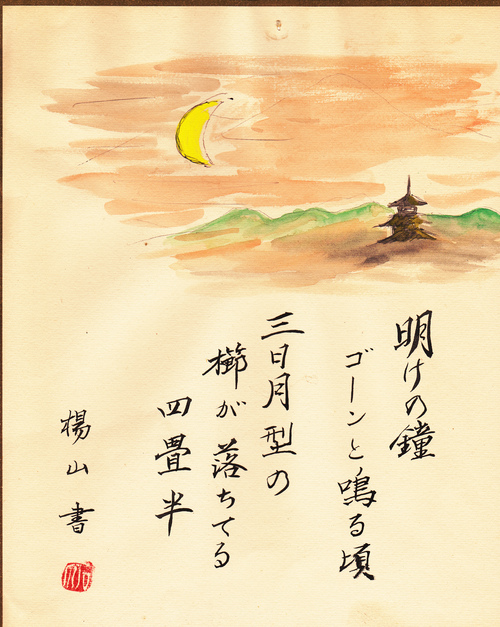 明けの鐘
ゴーンと鳴る頃
三日月型の
櫛が落ちてる
四畳半
楊山書